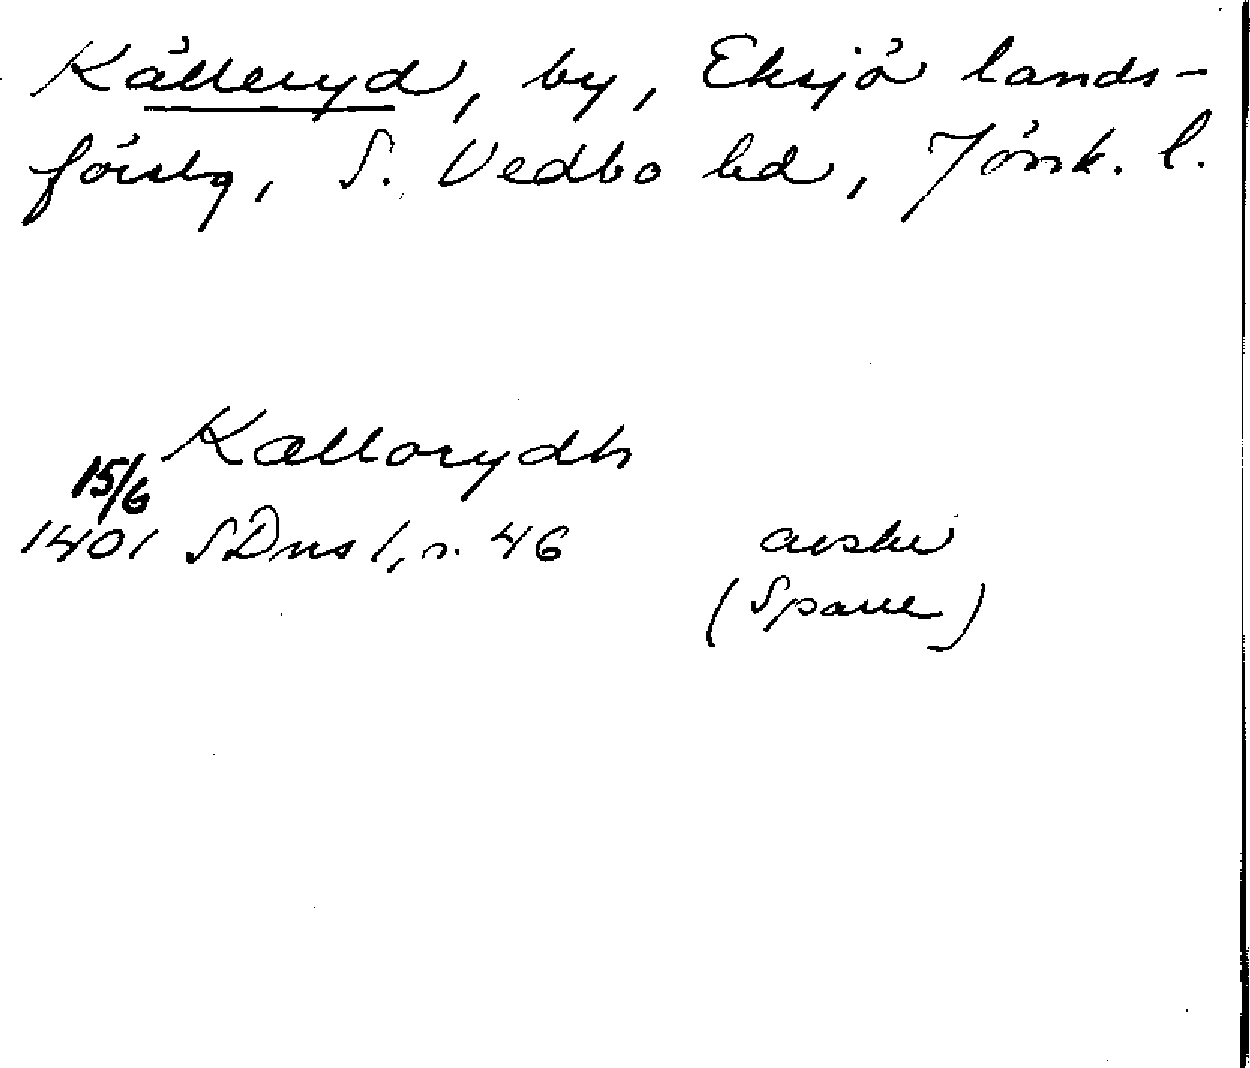 Källeryd, by, Eksjö lands-
förslg, S. Vedbo hd, Jönk. l.
Kællorydh
15/6
1401 SDns 1, s. 46 avskr
(Sparre)